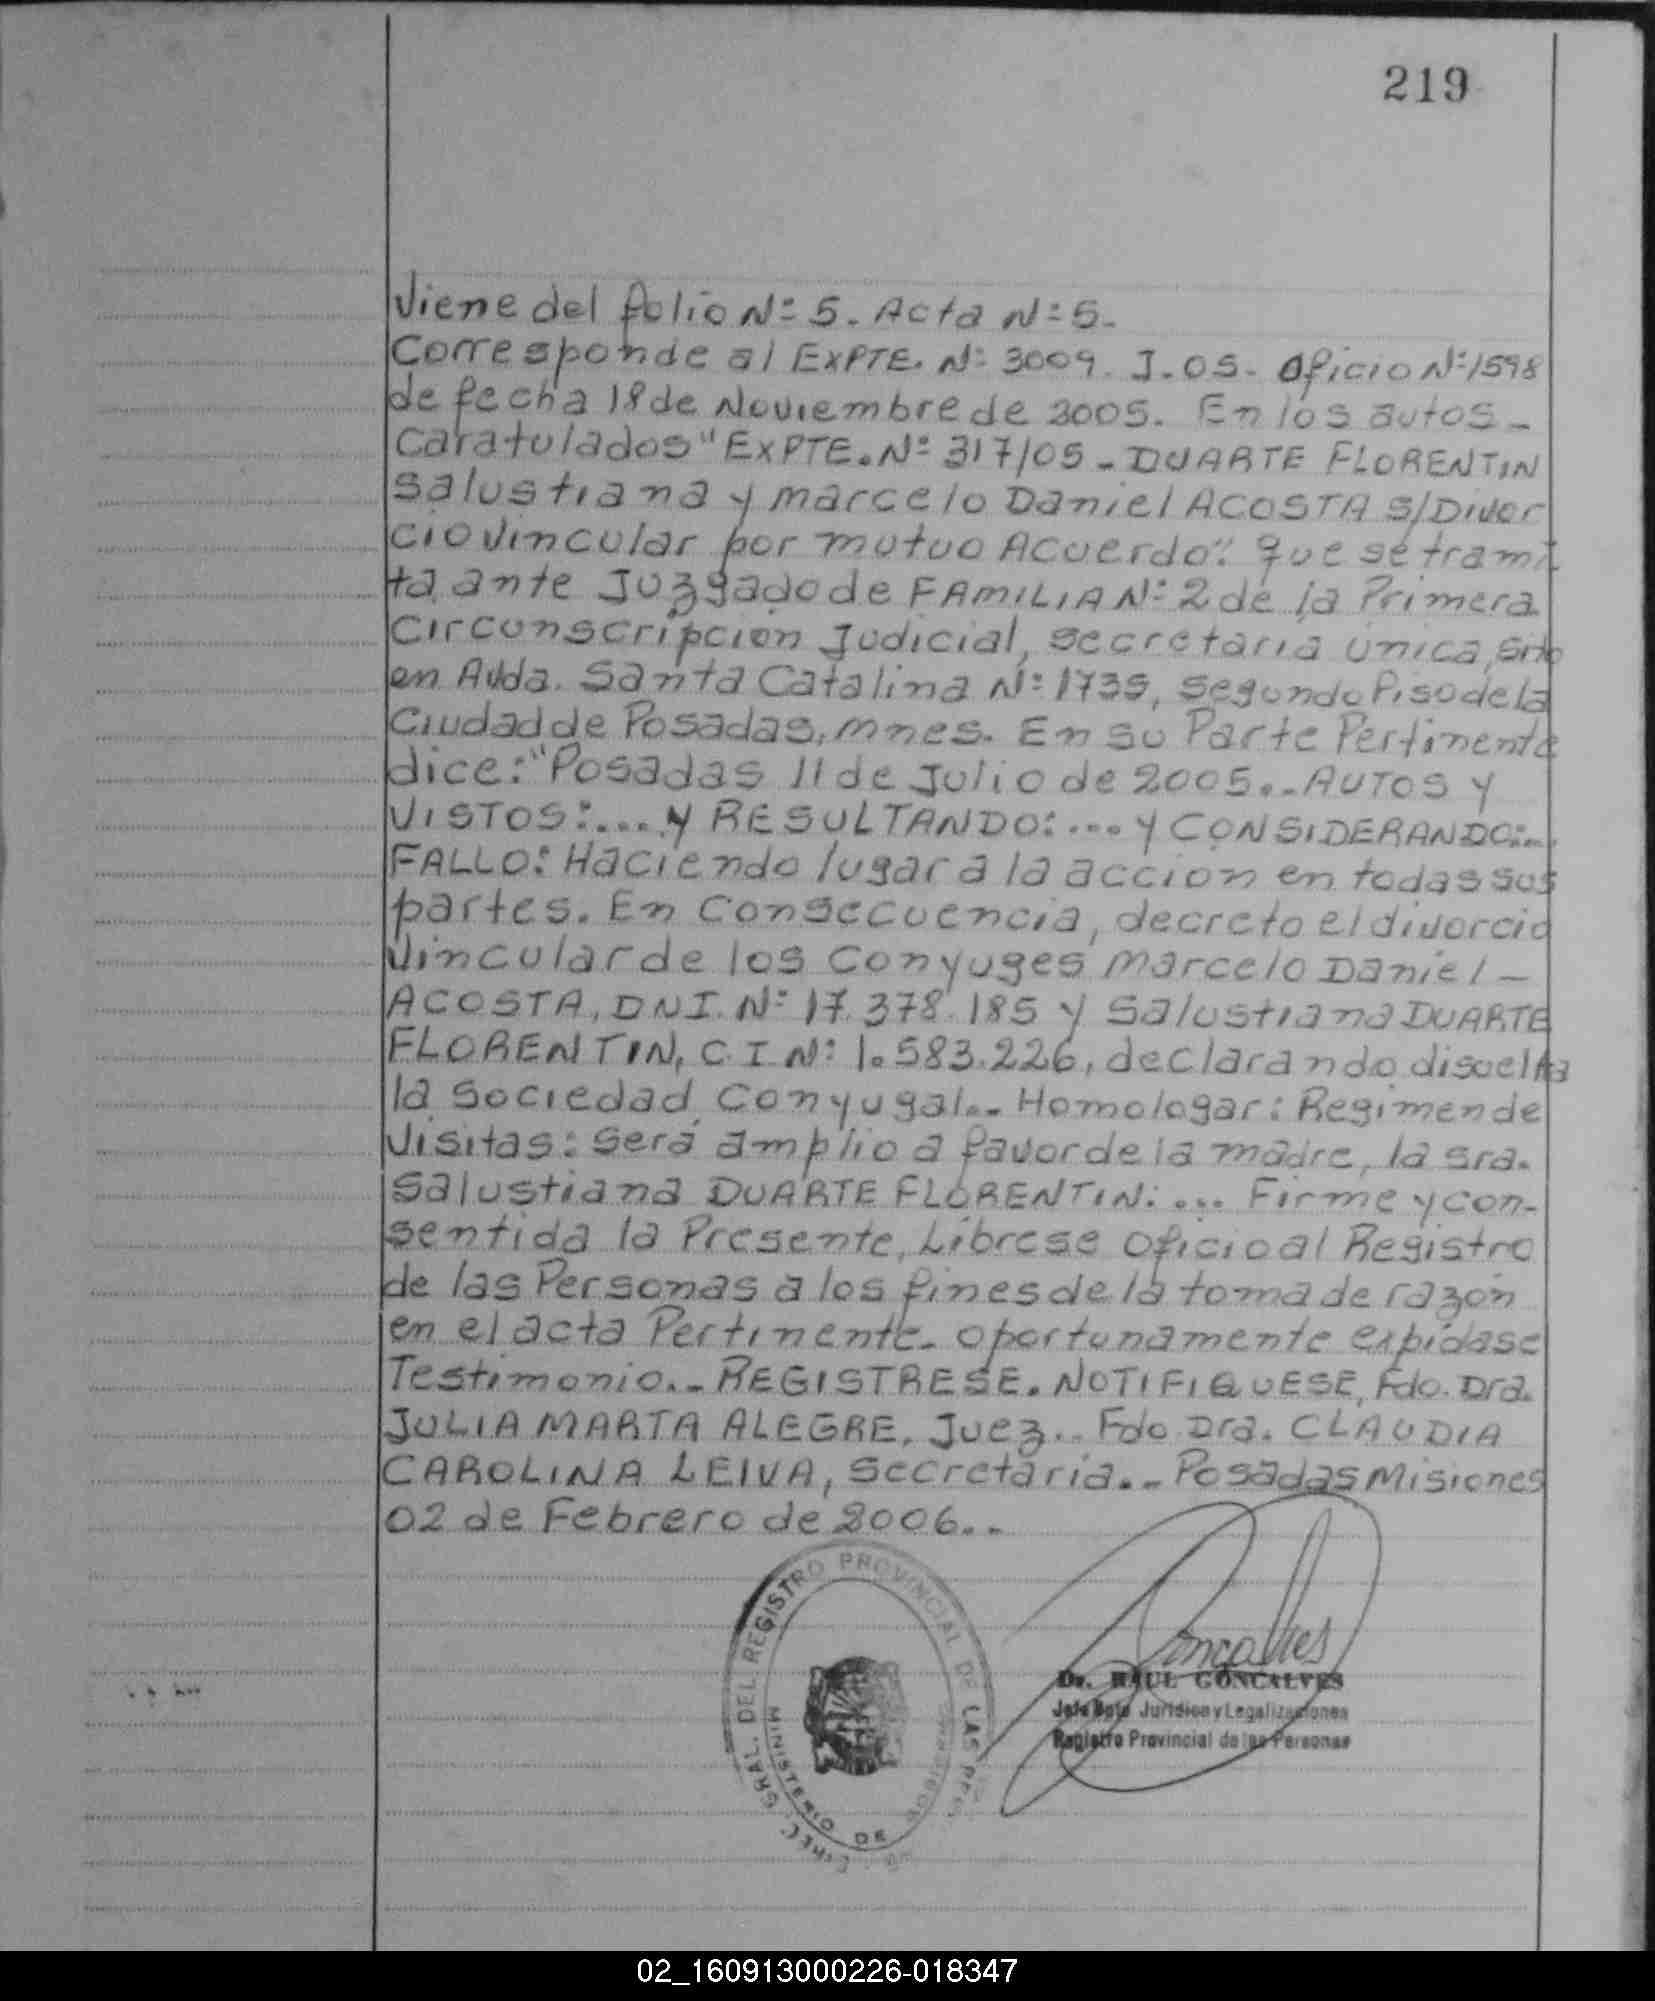 219
Viene del folio Nº 5. Acta Nº 5.
Corresponde al EXPTE. Nº 3009. J. 05. Oficio Nº 1598
de fecha 18 de Noviembre de 2005. En los autos -
Caratulados "EXPTE. Nº 317/05 - DUARTE FLORENTIN
Salustiana y Marcelo Daniel ACOSTA S/Divor
cio Vincular por mutuo Acuerdo". que se trami
ta ante Juzgado de FAMILIA Nº 2 de la Primera
Circunscripcion Judicial, secretaria única, sito
en Avda. Santa Catalina Nº 1735, Segundo Piso de la
Ciudad de Posadas, Mnes. En su Parte Pertinente
dice: "Posadas 11 de Julio de 2005.- AUTOS Y
VISTOS:.... Y RESULTANDO:.... Y CONSIDERANDO:...
FALLO: Haciendo lugar a la accion en todas sus
partes. En Consecuencia, decreto el divorcio
Vincular de los Conyuges Marcelo Daniel -
ACOSTA, DNI. Nº 17.378.185 y Salustiana DUARTE
FLORENTIN, C.I Nº 1.583.226, declarando disuelta
la Sociedad Conyugal.- Homologar: Regimen de
Visitas: Será amplio a favor de la madre, la sra.
Salustiana DUARTE FLORENTIN:.... Firme y con-
sentida la Presente, Líbrese Oficio al Registro
de las Personas a los fines de la toma de razón
en el acta Pertinente. Oportunamente expídase
Testimonio.- REGISTRESE. NOTIFIQUESE, Fdo. Dra.
JULIA MARTA ALEGRE, Juez.. Fdo Dra. CLAUDIA
CAROLINA LEIVA, Secretaria.- Posadas Misiones
02 de Febrero de 2006..
GRAL. DEL REGISTRO PROVINCIAL DE LAS
MINISTERIO DE
Goncalves
Dr. RAUL GONCALVES
Jefe Dpto Juridico y Legalizaciones
Registro Provincial de las Personas
02_160913000226-018347